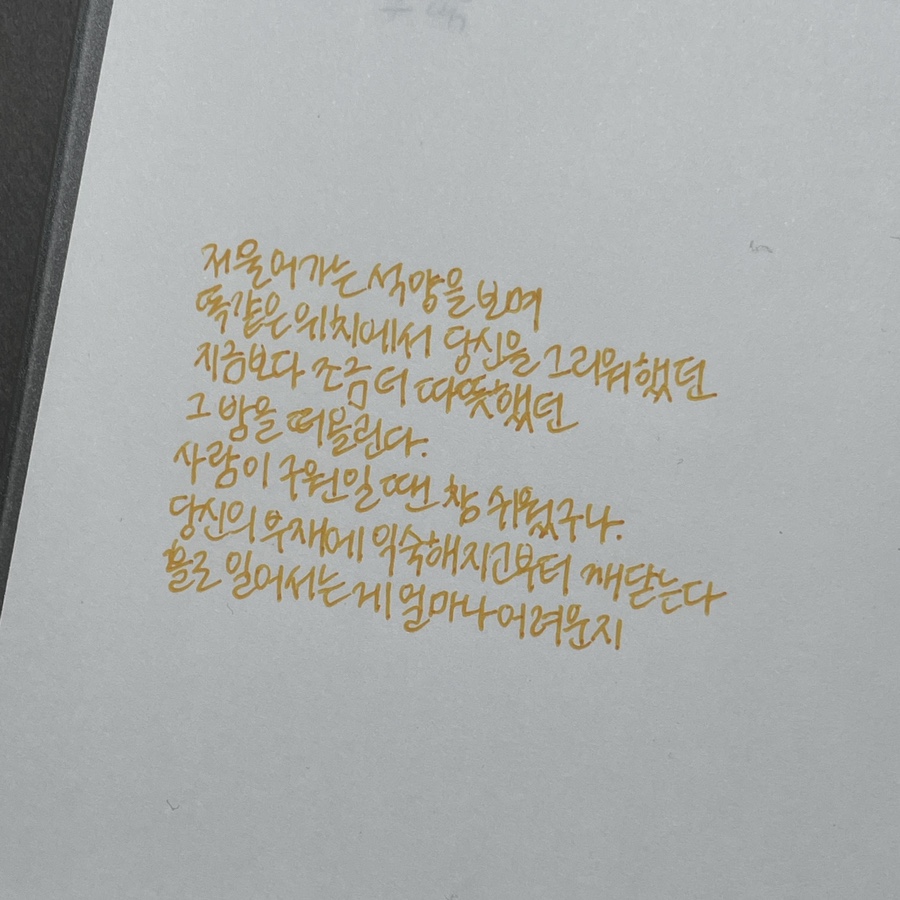 저물어가는 석양을 보며
똑같은 위치에서 당신을 그리워했던
지금보다 조금 더 따뜻했던
그 밤을 떠올린다.
사람이 구원일 땐 참 쉬웠구나.
당신의 부재에 익숙해지고부터 깨닫는다
홀로 일어서는 게 얼마나 어려운지